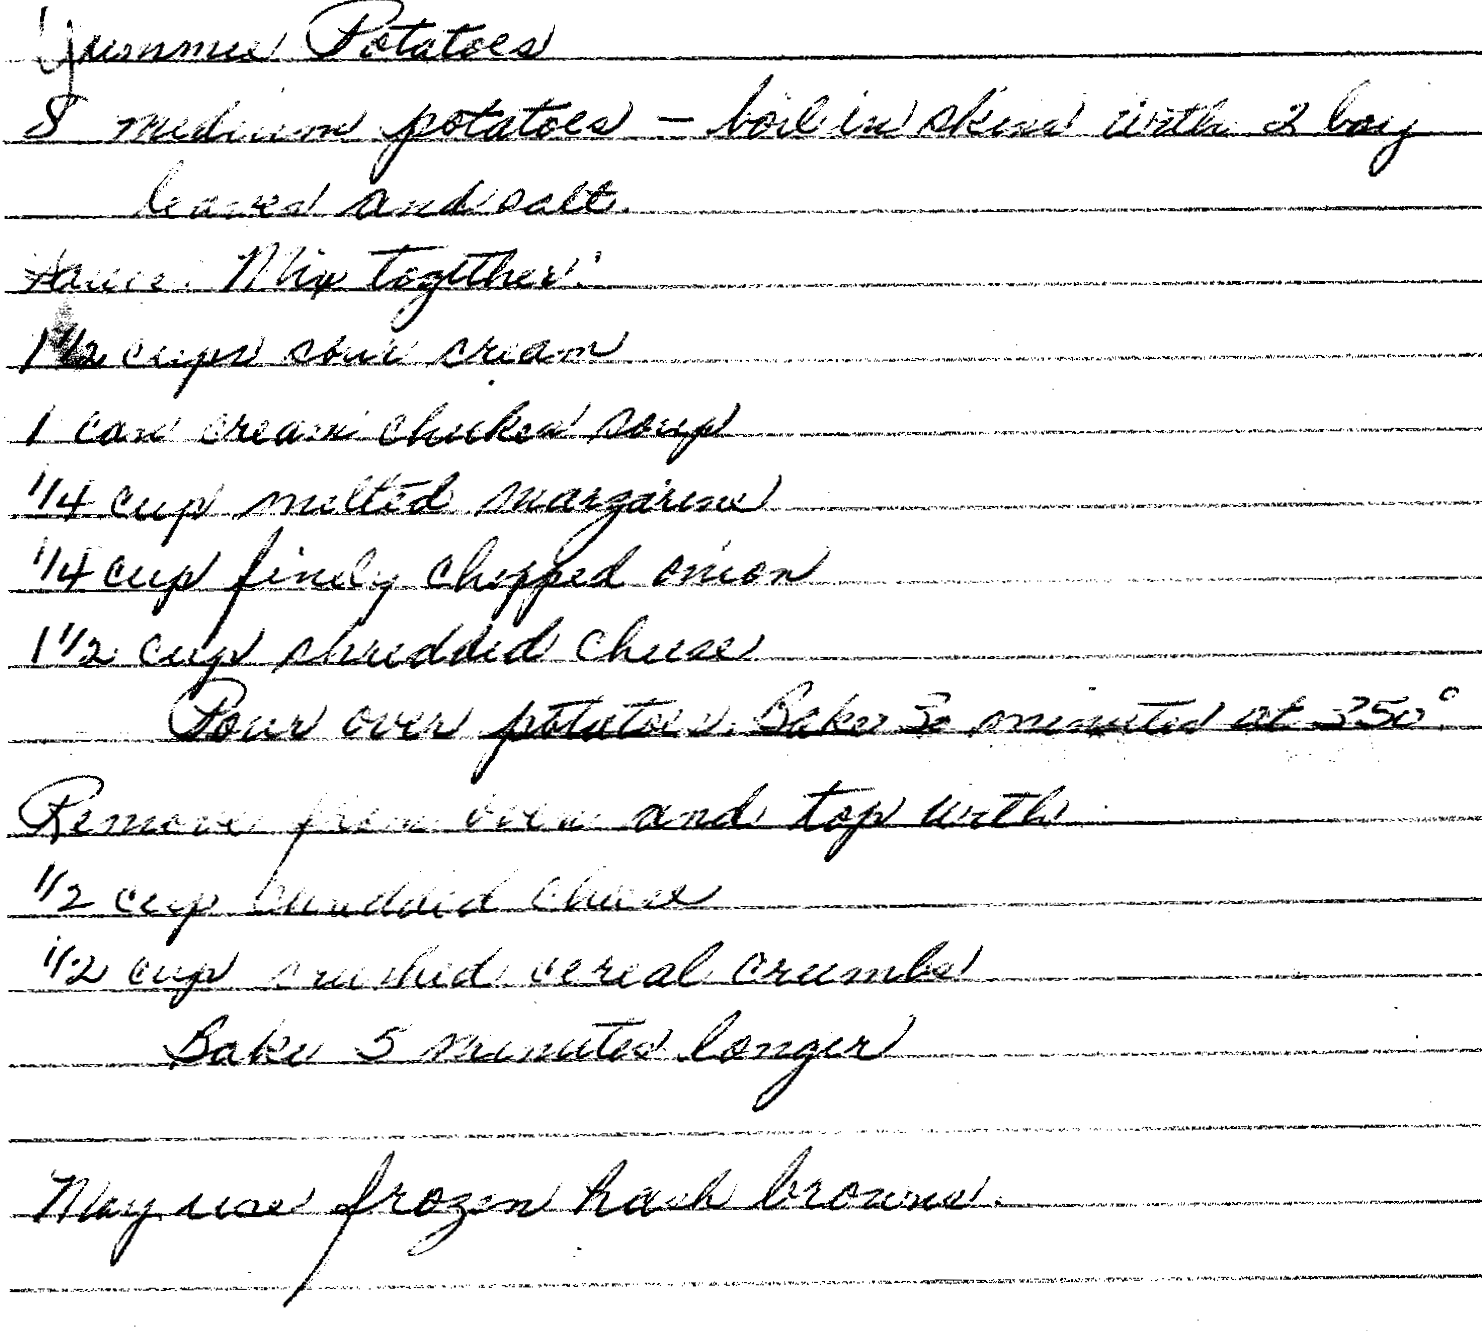 Yummie Potatoes
8 medium potatoes – boil in skins with 2 bay
leaves and salt.
Sauce: Mix together:
1 1/2 cups sour cream
1 can cream chicken soup
1/4 cup melted margarine
1/4 cup finely chopped onion
1 1/2 cup shredded cheese
Pour over potatoes. Bake 30 minutes at 350°.
Remove from oven and top with
1/2 cup shredded cheese
1/2 cup crushed cereal crumbs
Bake 5 minutes longer
May use frozen hash browns.